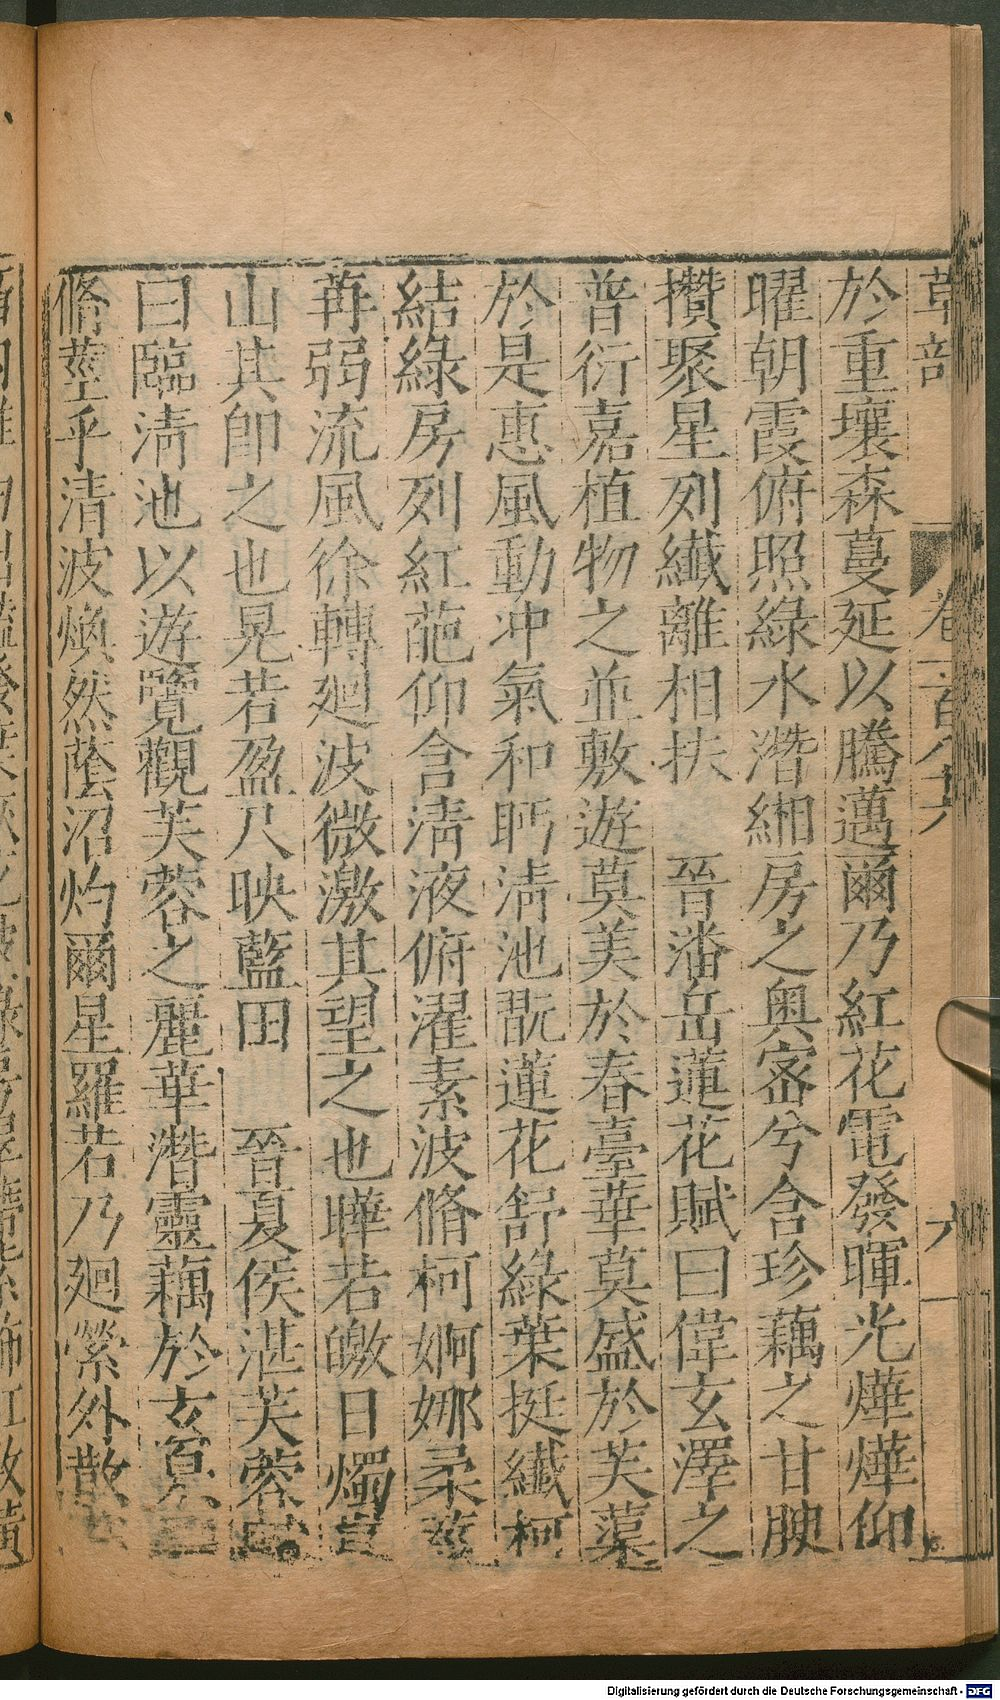 草部 卷一百八十六 六
於重壤森蔓延以騰邁爾乃紅花電發暉光燁燁仰
曜朝霞俯照綠水潛緗房之奧密兮含珍藕之甘腴
攢聚星列纖離相扶 晉潘岳蓮花賦曰偉玄澤之
普衍嘉植物之並敷遊莫美於春臺華莫盛於芙蕖
於是惠風動冲氣和眄清池翫蓮花舒綠葉挺纖柯
結綠房列紅葩仰含清液俯濯素波脩柯婀娜柔莖
苒弱流風徐轉廻波微激其望之也曄若皦日燭崑
山其卽之也晃若盈尺映藍田 晉夏侯湛芙蓉賦
曰臨淸池以遊覽觀芙蓉之麗華潛靈藕於玄泉
脩莖乎清波煥然蔭沼灼爾星羅若乃廻縈外散
Digitalisierung gefördert durch die Deutsche Forschungsgemeinschaft - DFG